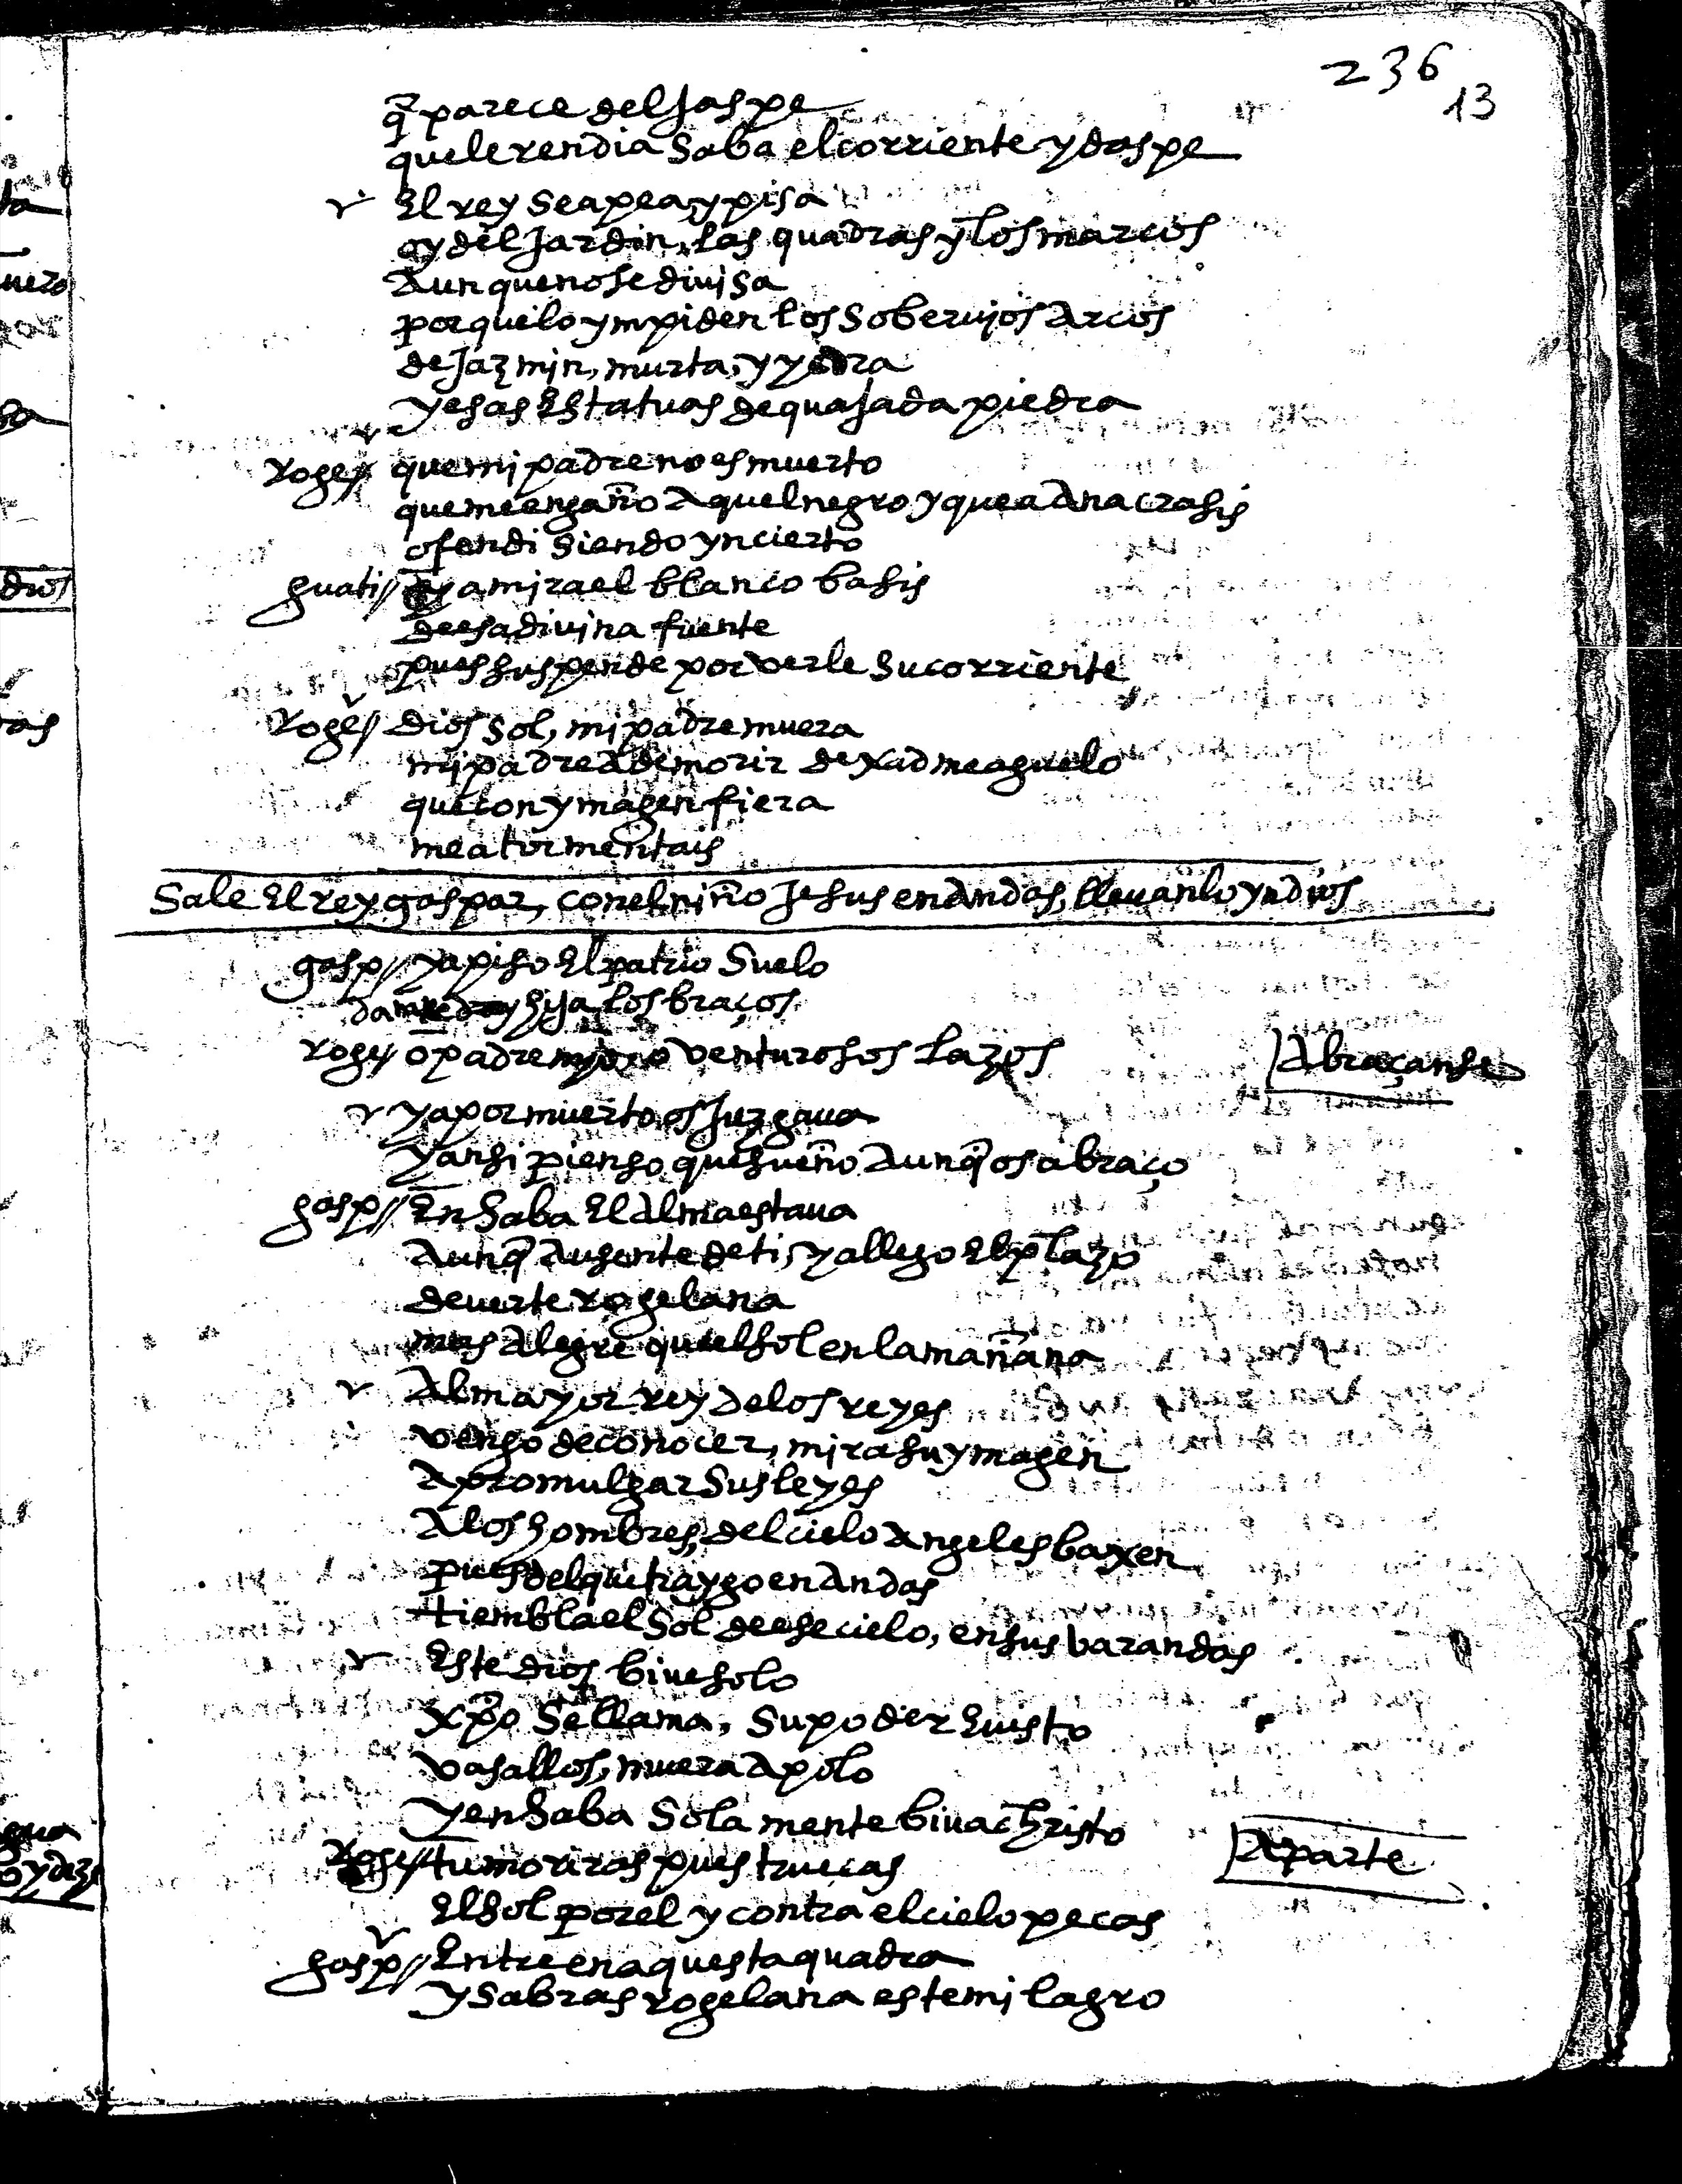 236
13
q̃ parece del Jaspe
que le rendia Saba el corriente ydaspe
El rey se apea, y pisa
oy del Jardin, las quadras y los marcos
Aunque no se diuisa
porque lo ympiden los Soberuios Arcos
de Jazmin, murta, y yedra
y esas Estatuas de quajada piedra
Roge// que mi padre no es muerto
que me engaño Aquel negro y que a Anacrasis
ofendi siendo yncierto
guati// ya mira el blanco basis
de esa diuina fuente
pues suspende por verle su corriente
Roge// Dios Sol, mi padre muera
mi padre A de morir dexadme aguelo
que con ymagen fiera
me atormentais
Sale El rey gaspar, con el niño Jesus en Andas, lleuanlo yndios
gasp// ya piso El patrio Suelo
dame hija los braços
Roge// o padre mio o venturosos lazos
Abraçanse
ya por muerto os Juzgaua
y ansi pienso que sueño Aunq̃ os abraço
gasp// En Saba El Alma estaua
Aunq̃ Ausente de ti, y allego El plazo
de uerte rogelana
mas Alegre que el sol en la mañana
Al mayor rey de los reyes
vengo de conocer, mira su ymagen
A promulgar Sus leyes
A los hombres, del cielo Angeles baxen
pues del que traygo en Andas
tiembla el Sol de ese cielo, en sus barandas
Este dios biue solo
Xp̃o Se llama, Su poder E uisto
vasallos, muera Apolo
y en Saba Sola mente biua christo
Roge// tu moriras pues truecas
Aparte
El Sol por el y contra el cielo pecas
gasp// Entre en aquesta quadra
y Sabras rogelana este milagro